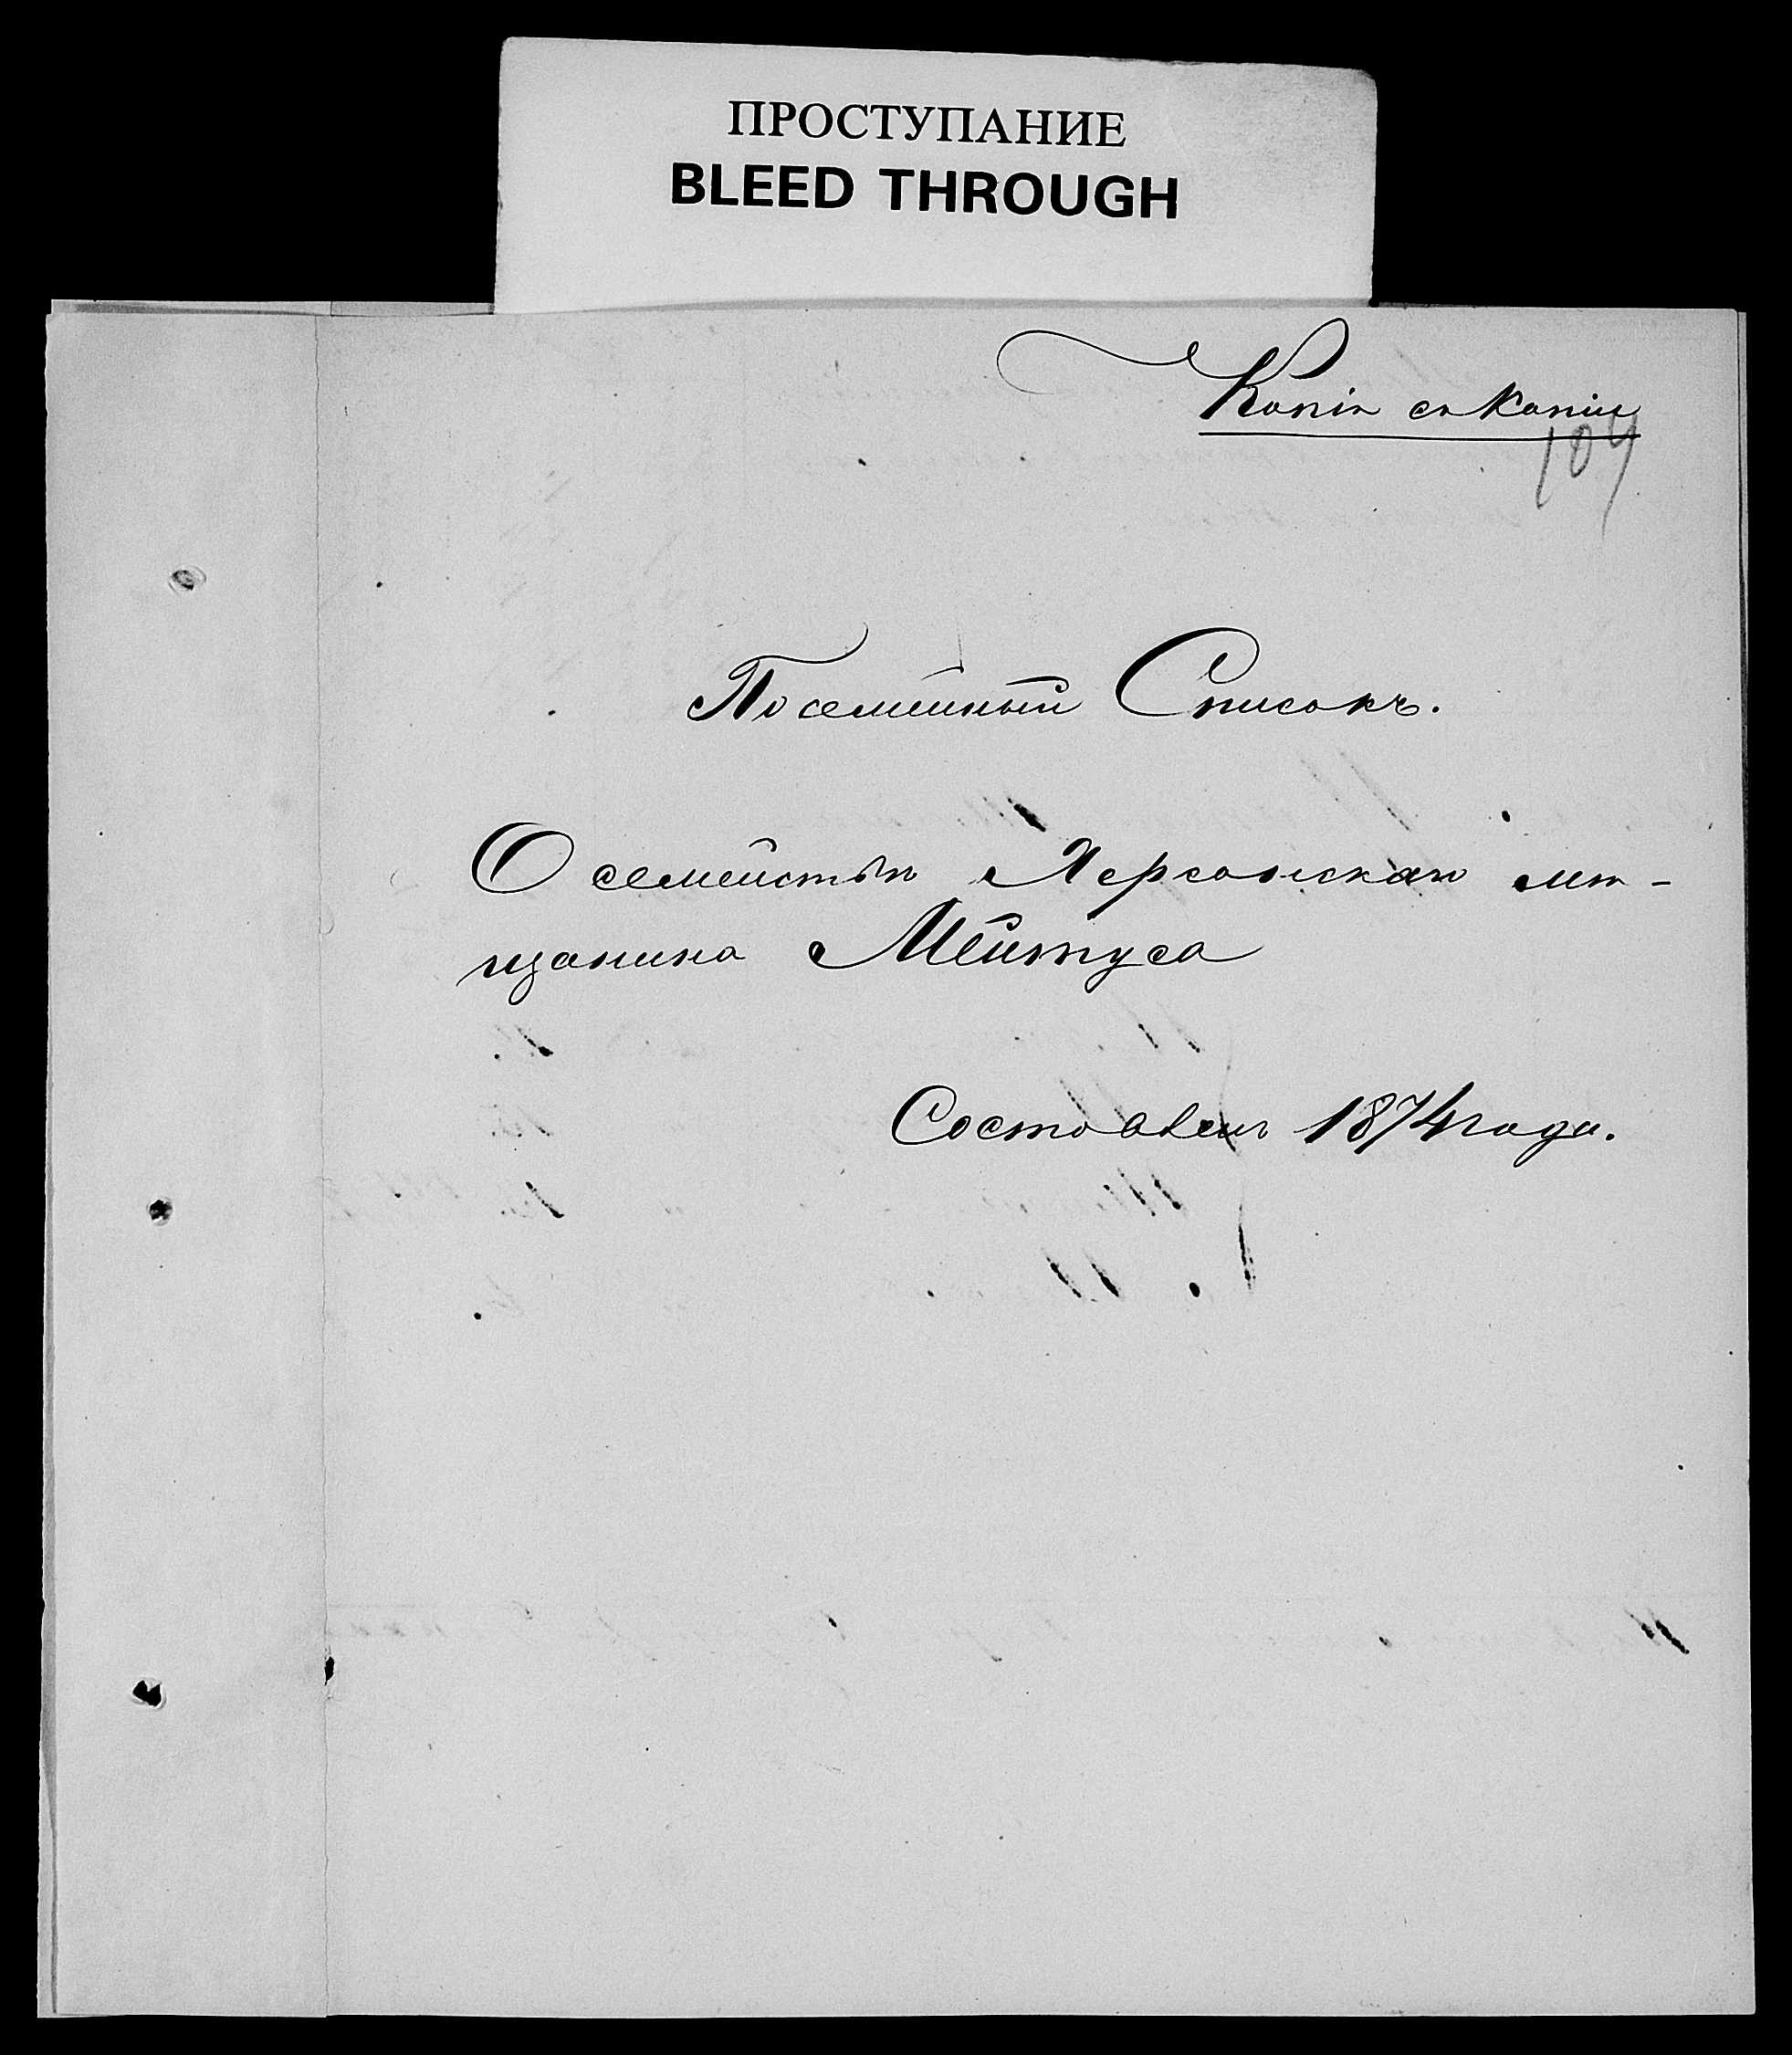 ПРОСТУПАНИЕ
BLEED THROUGH
Копія съ копіи
107
Посемейный Списокъ.
О семействѣ Херсонскаго мѣ-
щанина Мейтуса
Составленъ 1874 года.